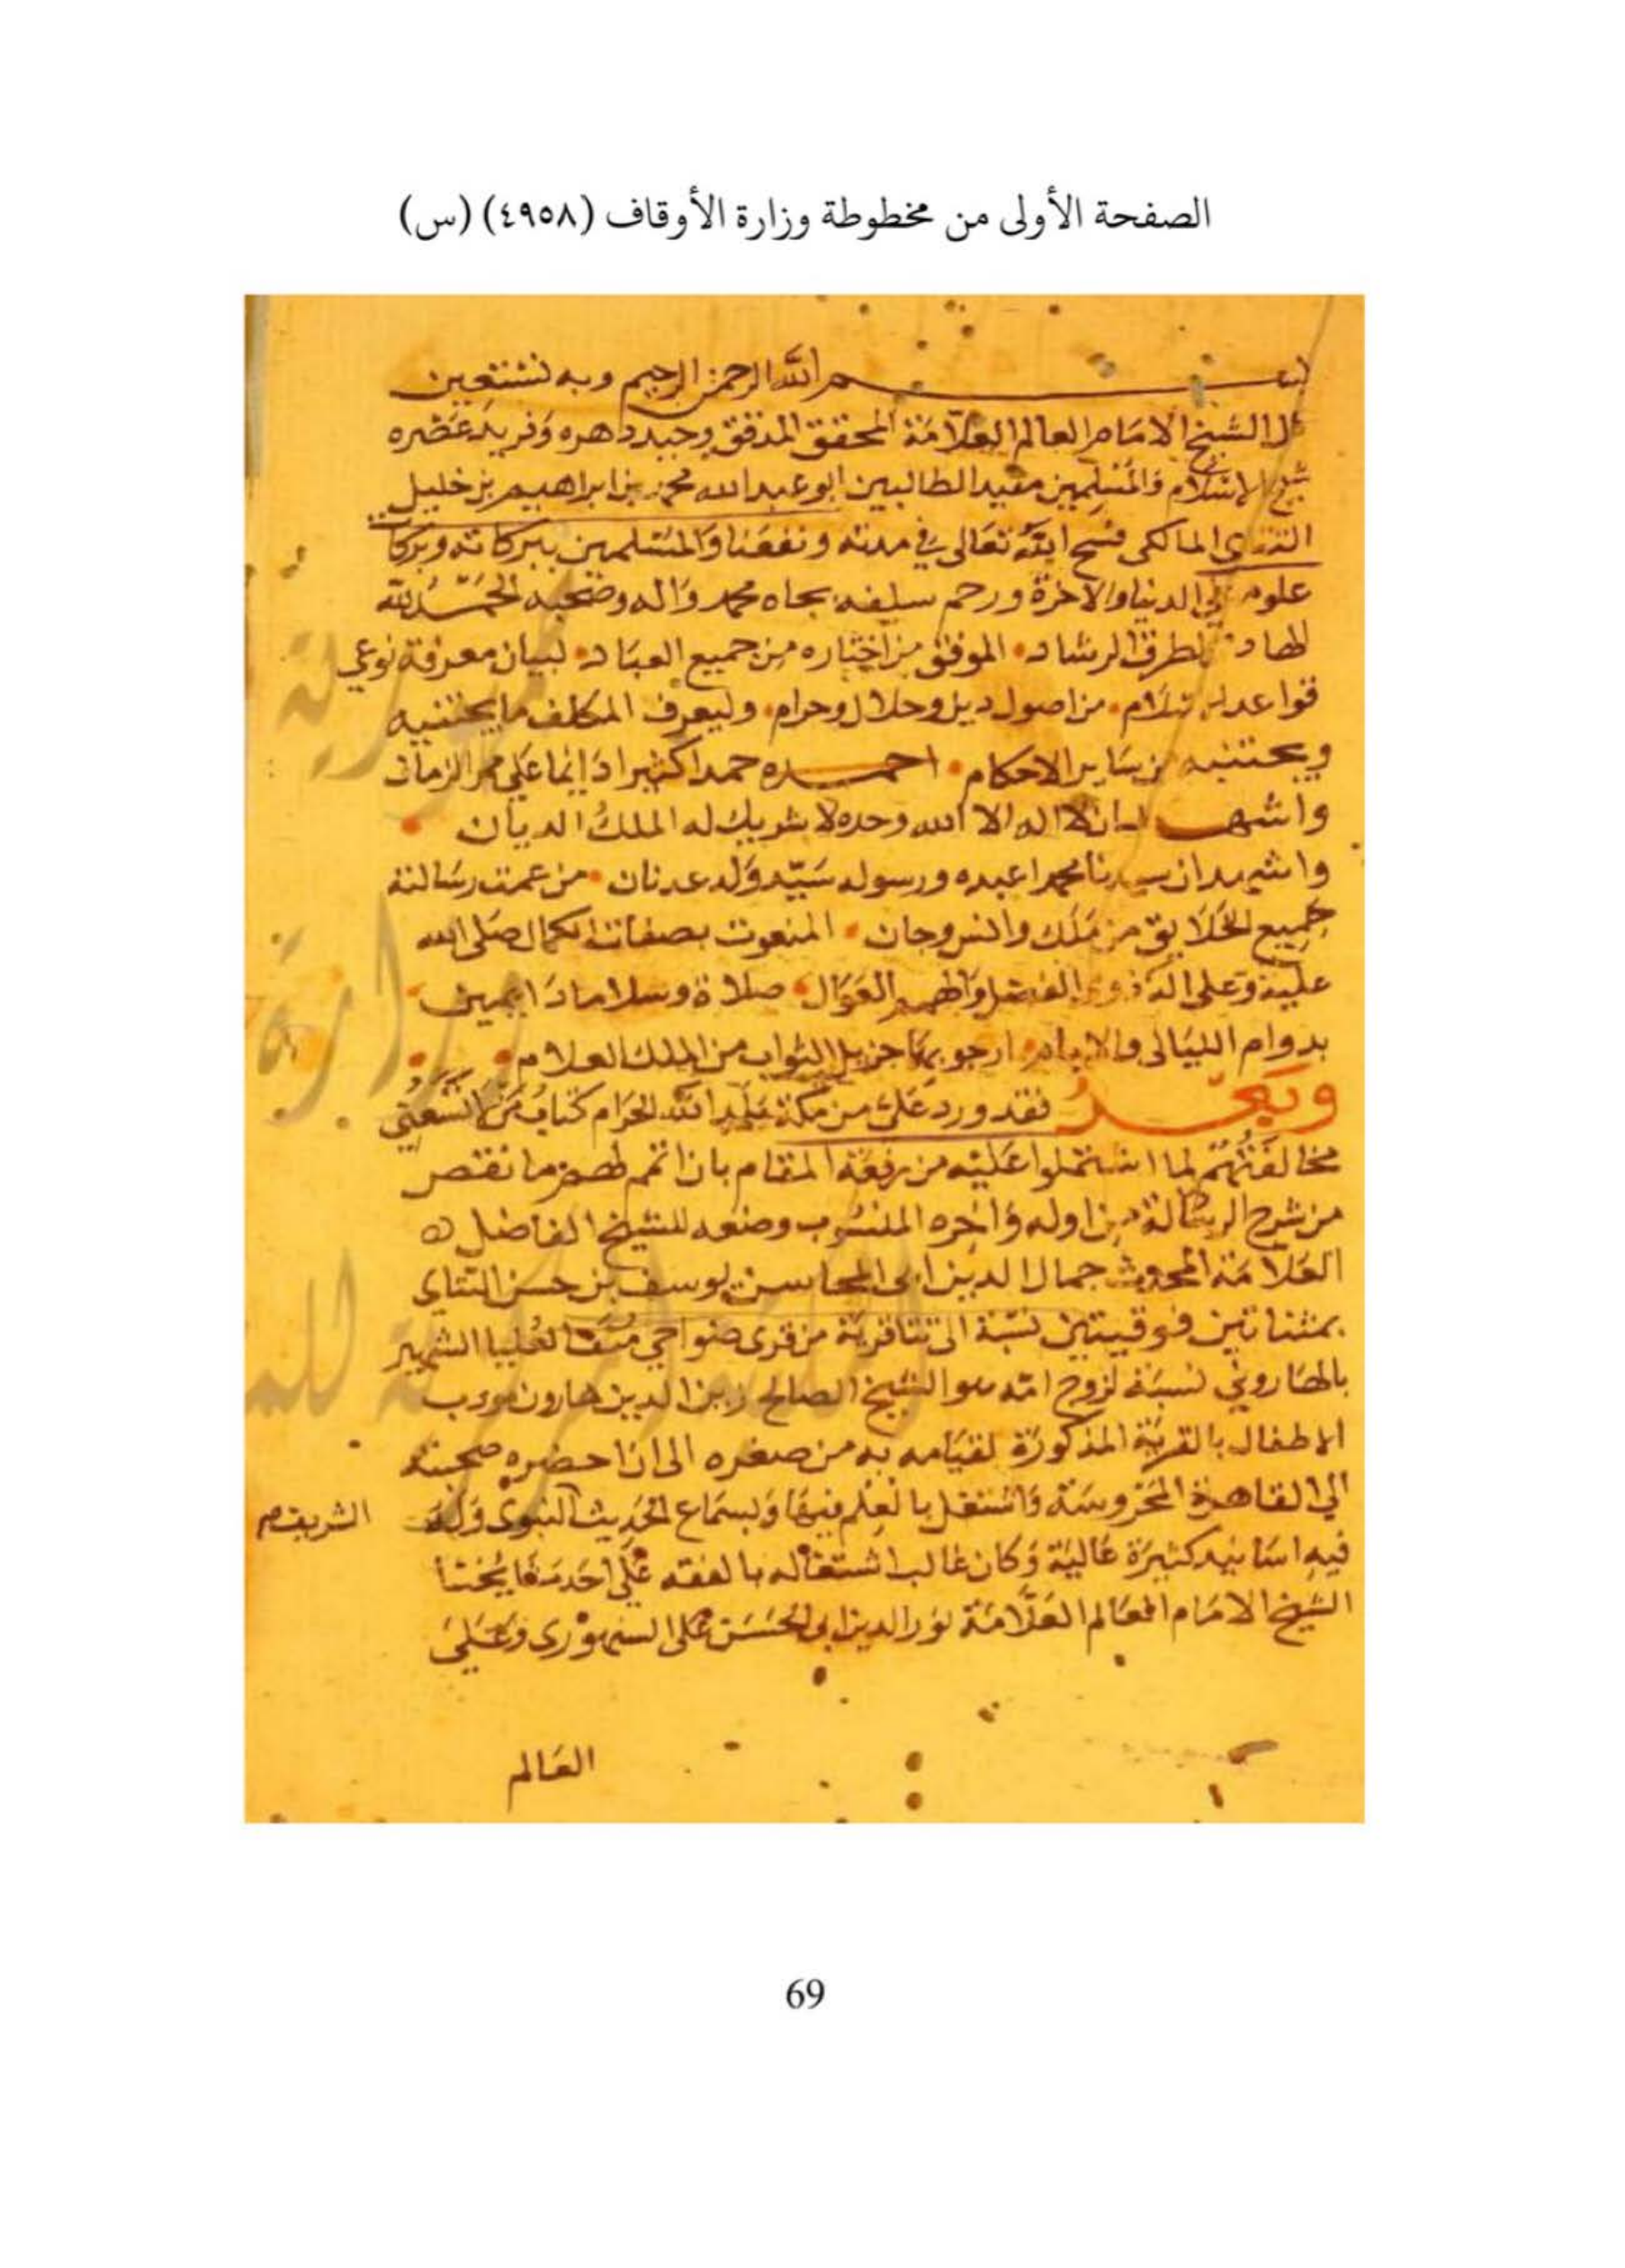 الصفحة الأولى من مخطوطة وزارة الأوقاف (٤٩٥٨) (س)
بسم الله الرحمن الرحيم وبه نستعين
الشيخ الامام العالم العلامة المحقق المدقق وحيد دهره وفريد عصره
شيخ الاسلام والمسلمين مفيد الطالبين ابو عبد الله محمد بن ابراهيم بن خليل
التتاى المالكى فسح الله تعالى في مدته ونفعنا والمسلمين ببركاته وبركات
علومه في الدنيا والاخرة ورحم سلفه بجاه محمد واله وصحبه الحمد لله
الهادى لطرق الرشاد الموفق من اختاره من جميع العباد لبيان معرفة نوعي
قواعد الاسلام من اصول دين وحلال وحرام وليعرف المكلف ما يجتنيه
ويجتنبه من ساير الاحكام احمده حمدا كثيرا دايما على ممر الزمان
واشهد ان لا اله الا الله وحده لا شريك له الملك الديان
واشهد ان سيدنا محمدا عبده ورسوله سيد ولد عدنان من عمت رسالته
جميع الخلايق من ملك وانس وجان المنعوت بصفات الكمال صلى الله
عليه وعلى اله ذوى الفضل صلاة وسلاما دايمين
بدوام الليالى والايام ارجو بها جزيل الثواب من الملك العلام
وبعد فقد ورد على من مكة بلد الله الحرام كتاب من لا تسعنى
مخالفتهم لما اشتملوا عليه من رفعة المقام بان اتمم لهم ما نقص
من شرح الرسالة من اوله واخره المنسوب وضعه للشيخ الفاضل
العلامة المحدث جمال الدين ابى المحاسن يوسف بن حسن التتاى
بمثناتين فوقيتين نسبة الى تتا قرية من قرى ضواحي منف العليا الشهير
بالهارونى نسبة لزوج امه هو الشيخ الصالح زين الدين هارون مودب
الاطفال بالقرية المذكورة لقيامه به من صغره الى ان احضره صحبته
الى القاهرة المحروسة واشتغل بالعلم فيها وبسماع الحديث النبوى وله
الشريف
فيه اسانيد كثيرة عالية وكان غالب اشتغاله بالفقه على احد مشايخنا
الشيخ الامام العالم العلامة نور الدين ابى الحسن على السنهورى وعلى
العالم
69